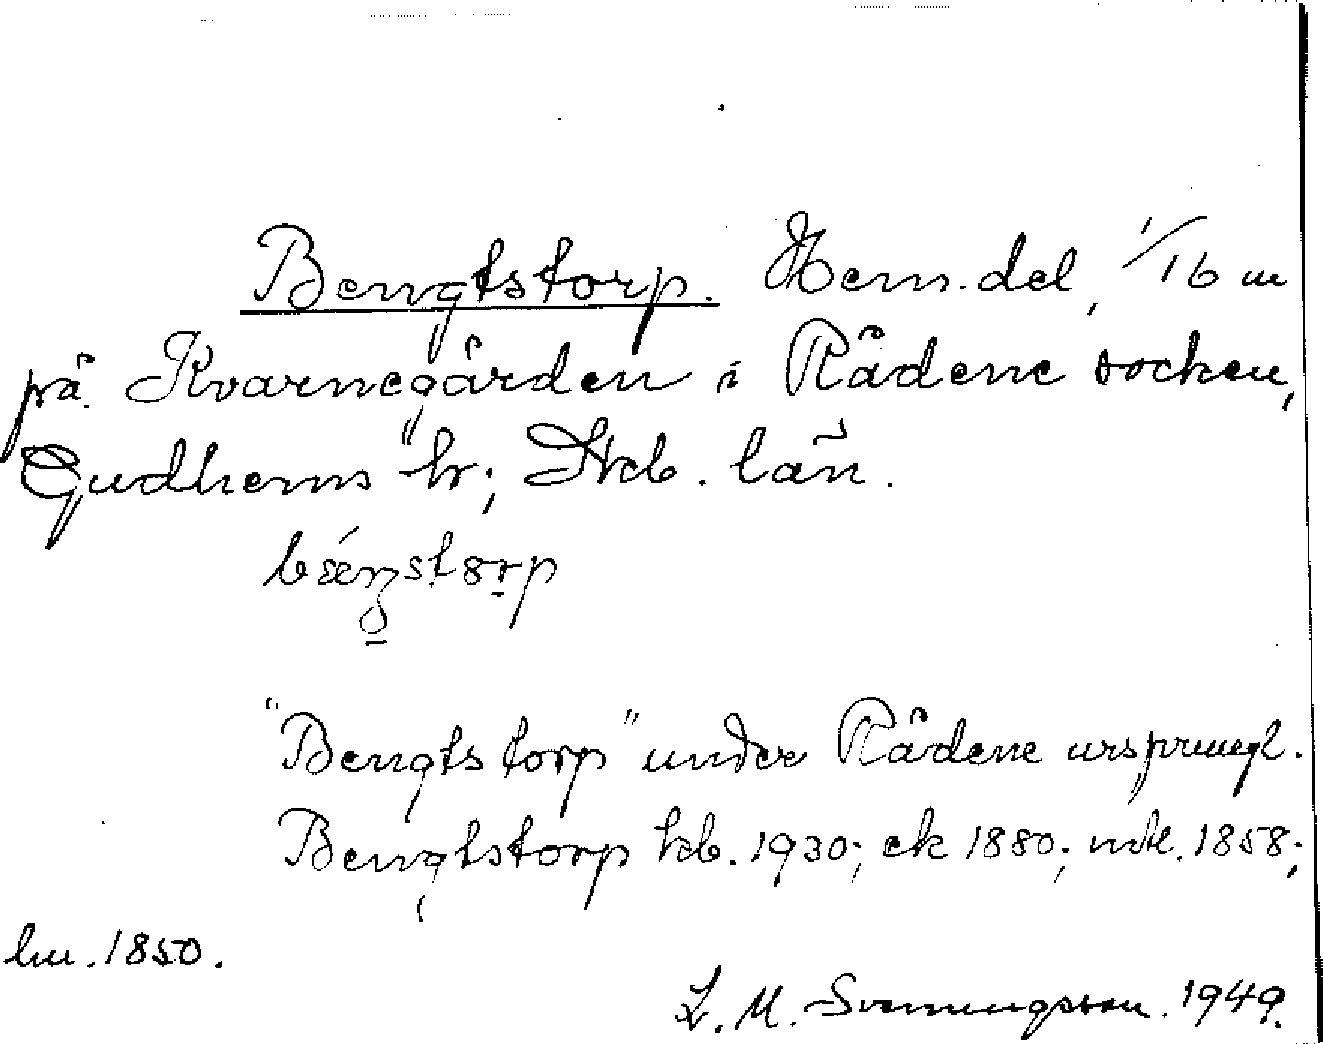 Bengtstorp. Hem.del, 1/16 m
på Kvarnegården i Rådene socken,
Gudhems hr; Skb. län.
bæŋstorp
"Bengtstorp" under Rådene ursprungl.
Bengtstorp kb. 1930; ek 1880; mtl. 1858;
hu. 1850.
L. M. Svenungsson. 1949.